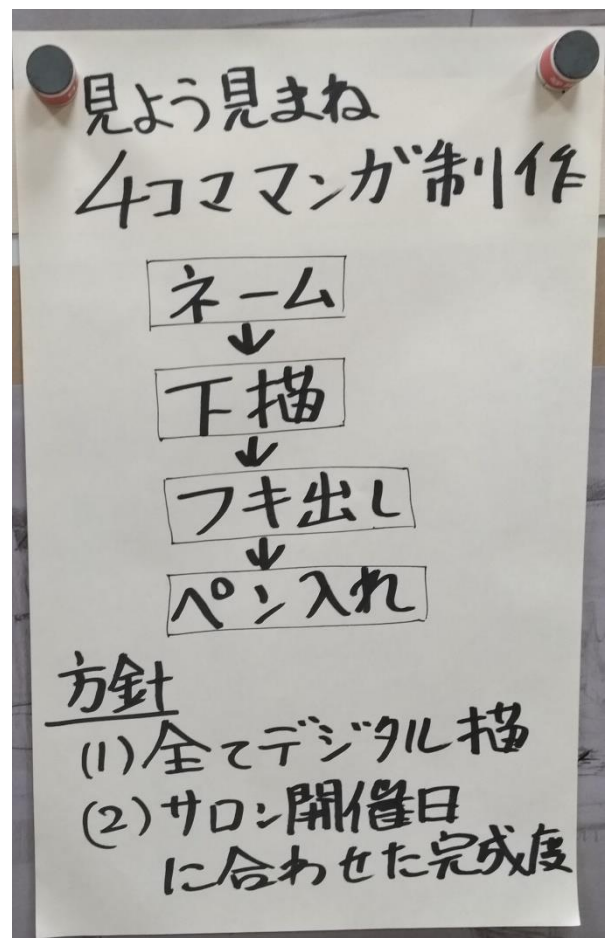 見よう見まね
4コママンガ制作
ネーム
↓
下描
↓
フキ出し
↓
ペン入れ
方針
(1)全てデジタル描
(2)サロン開催日
に合わせた完成度